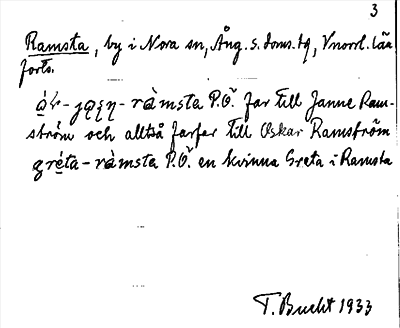 3
Ramsta, by i Nora sn, Ång. s. doms. tg, Vnorrl. län
forts.
rà̀msta P.Ö. far till Janne Ram-
ström och alltså farfar till Oskar Ramström
gréta-ràmsta P.Ö. en kvinna Greta i Ramsta
T. Bucht 1933